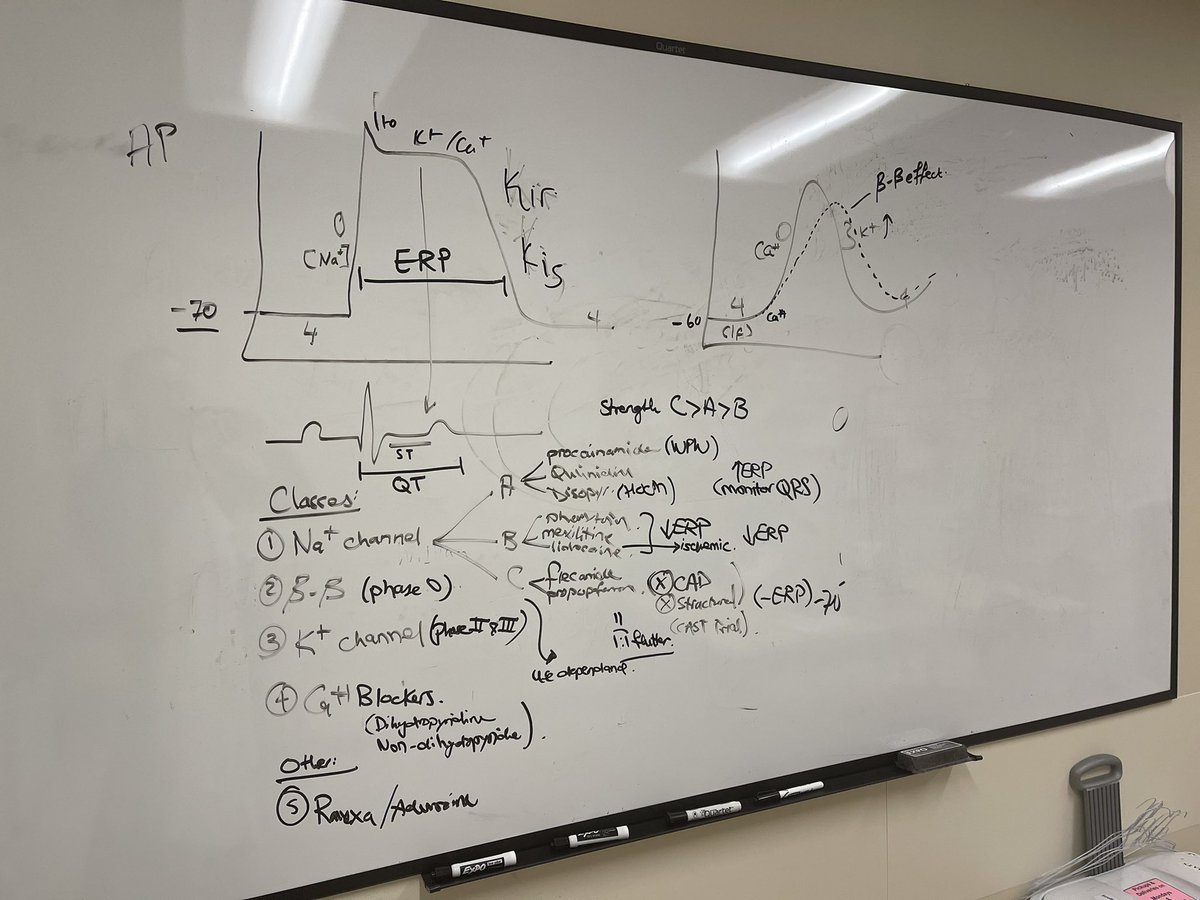 Quartet
AP
Ito
K+/Ca+
Kir
Kis
0
[Na+]
ERP
-70
4
4
β-β effect.
0
Ca++
3
K+ ↑
4
(If)
Ca++
-60
4
ST
QT
Strength C>A>B
Classes:
① Na+ channel
A
procainamide (WPW)
Quinidine
Disopyr. (HOCM)
↑ERP
(monitor QRS)
B
mexilitine
lidocaine
↓ERP
→ischemic.
↓ERP
C
flecainide
ⓧ CAD
ⓧ Structural
(CAST trial).
(-ERP)
"
1:1 flutter.
use dependance.
② β-β (phase 0)
③ K+ channel (phase II & III)
④ Ca++ Blockers.
(Dihydropyridine
Non-dihydropyridine).
Other:
⑤ Ranexa/Adenosine
EXPO
EXPO
Quartet
EXPO